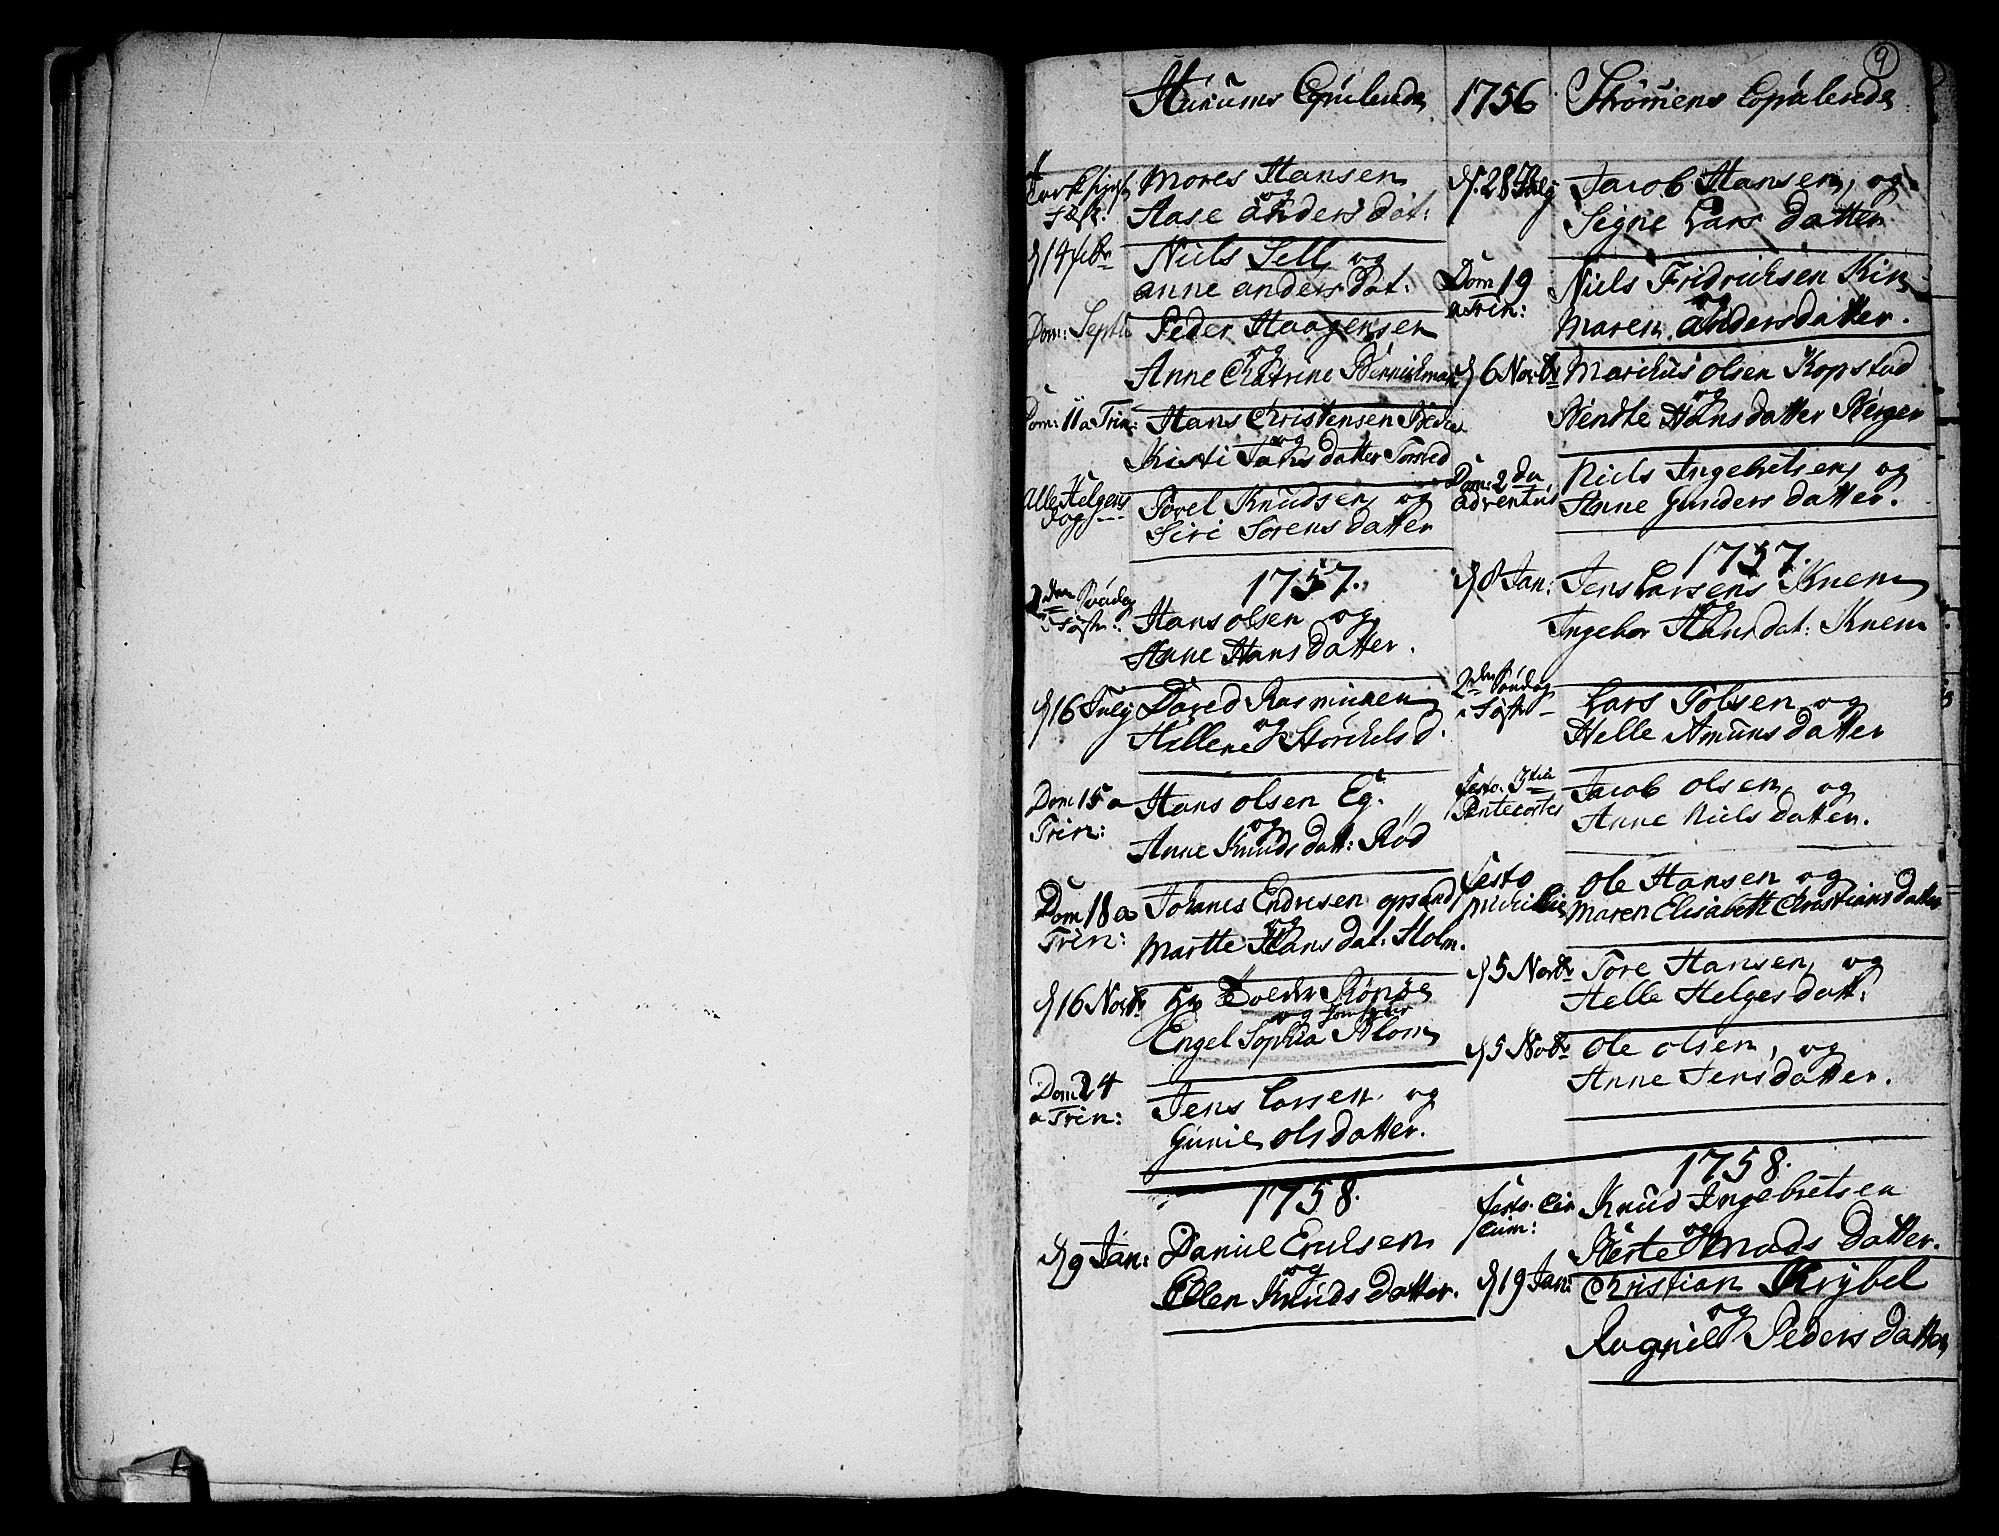 9
Hurums Copulerede 1756 Strømens Copulerede
Mores Hansen
og
Aase anders dat:
d 14 febr
Niels Sell og
anne anders dat:
Dom: Septu
Peder Haagensen
og
Anne Catrine
Dom: 11 a Trin:
Hans Christensen
og
Kisti Jans datter Tomted
Alle Helgens
dag
Povel Knudsen og
Siri Sørens datter
1757.
2den Søndag
i Faste:
Hans olsen og
Anne Hans datter.
d 16 July
David Rasmusen
og
Hellene Størchels d.
Dom 15 a
Trin:
Hans olsen Eg.
og
Anne Knuds datt: Rød
Dom 18 a
Trin:
Johanes Endresen opsand
og
Marthe Hans dat: Holm.
d 16 Novbr
Hr
og Jomfrue
Engel Sophia Blom
Dom 24
a Trin:
Jens Larsen og
Gunil ols datter.
1758.
d 9 Jan:
Daniel Erichsen
og
Ellen Knuds datter.
d. 28 July
Jacob Hansen, og
Signe Lars datter
Dom 19
a Trin:
Niels Fridrichsen Kin
og
Maren anders datter.
d 6 Novbr
Marchus olsen Kopstad
og
Bendte Hans datter Berger
Dom: 2 da
adventus
Niels Ingebretsen og
Anne Gunders datter.
1757.
d 8 Jan:
Jens Larsens Knem
og
Ingebor Hans dat: Knem
2den Søndag
i Faste
Lars Tolsen og
Helle Amuns datter
festo 3tia
Pentecostes
Jacob olsen, og
Anne Niels datter.
festo
Michaelis
Ole Hansen og
Maren Elisabeth Christians datter
d 5 Novbr
Tore Hansen, og
Helle Helges datt:
d 5 Novbr
Ole olsen, og
Anne Jens datter.
1758.
festo Cir
cum:
Knud Ingebretsen
og
Berte Mads datter.
d 19 Jan:
Christian Krybel
og
Ragnil Peders datter